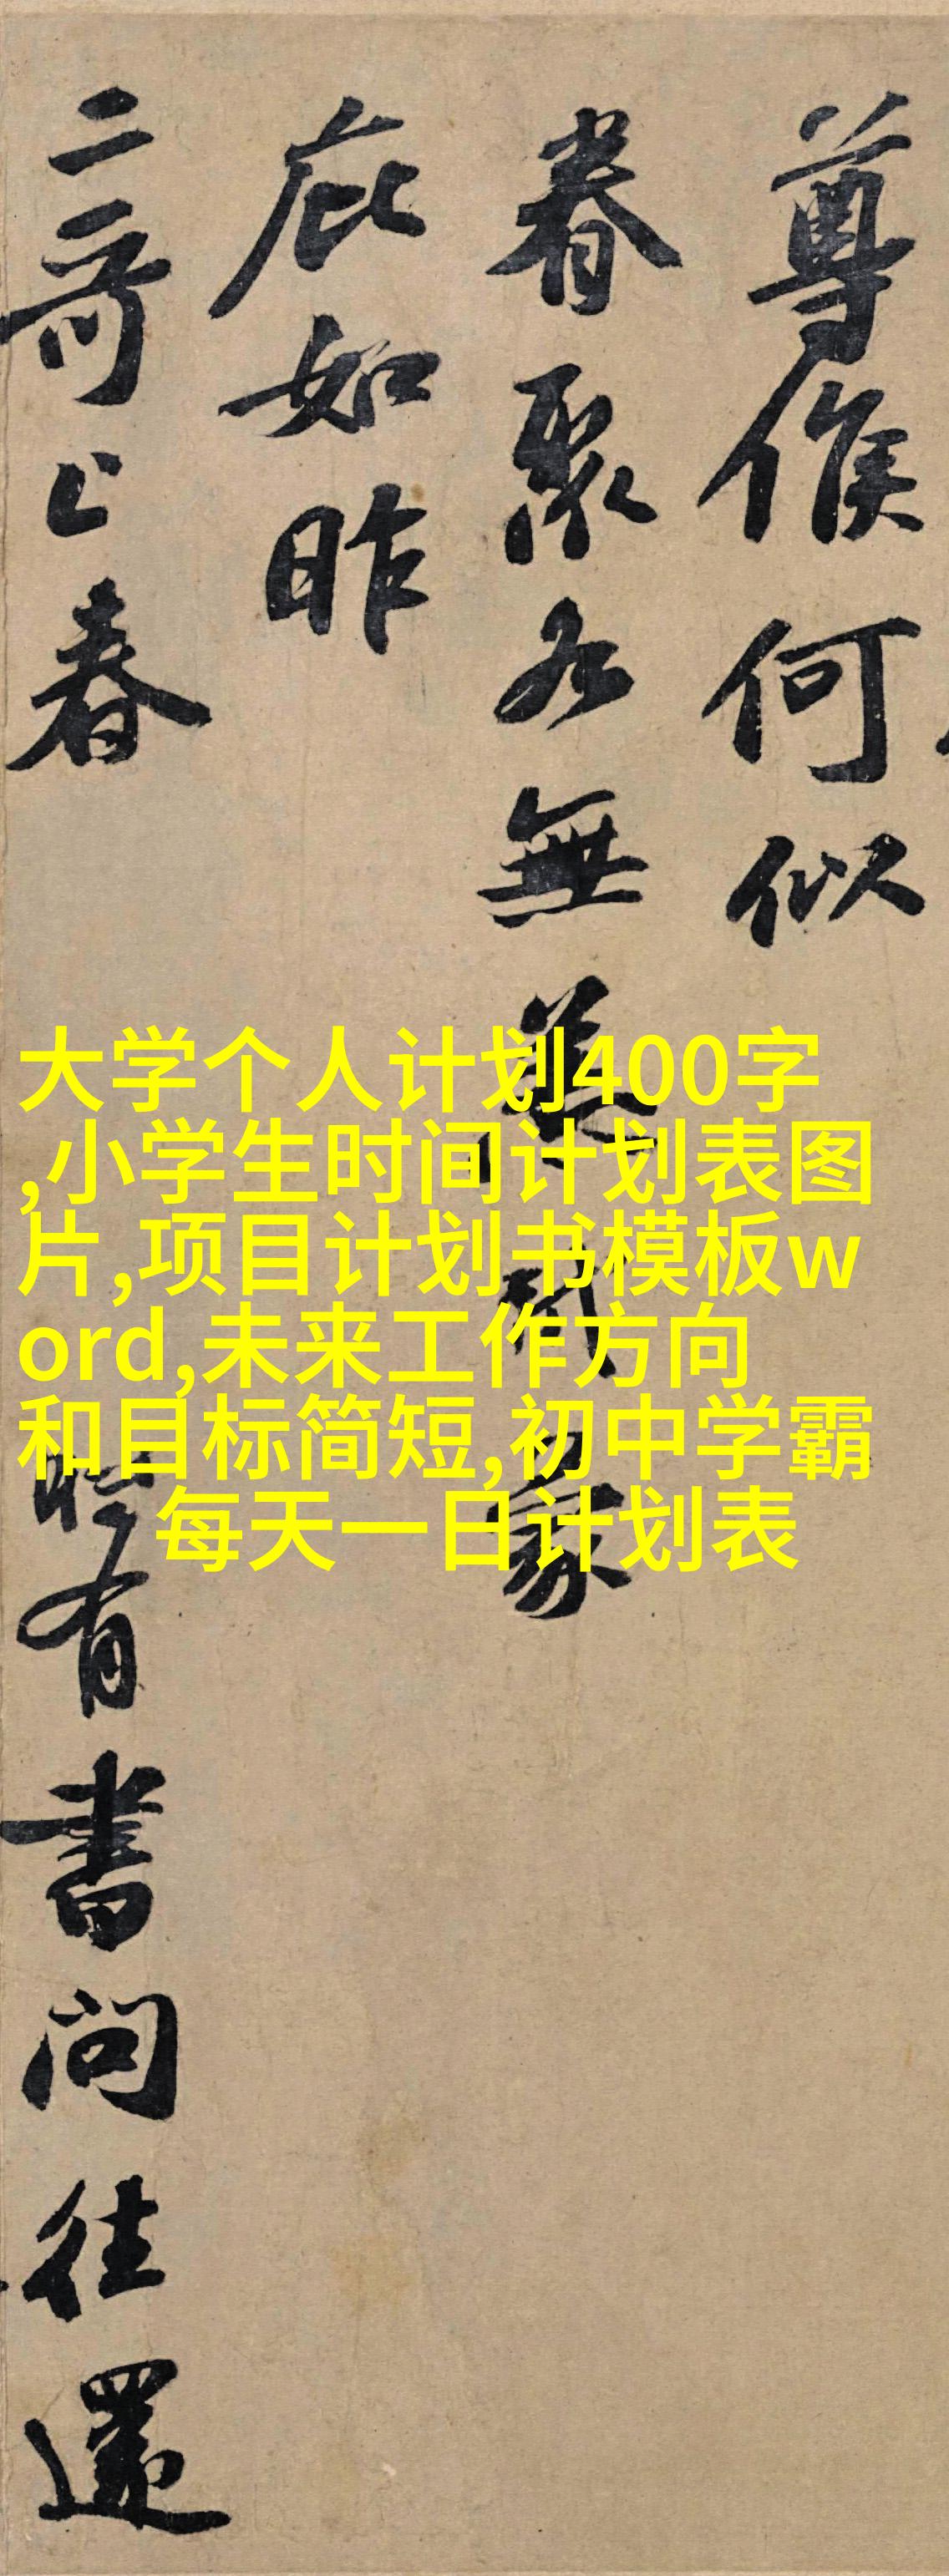 尊候何似
眷聚各無恙聞蒙
庇如昨
二哥上春
時有書問往還
大学个人计划400字
,小学生时间计划表图
片,项目计划书模板w
ord,未来工作方向
和目标简短,初中学霸
每天一日计划表